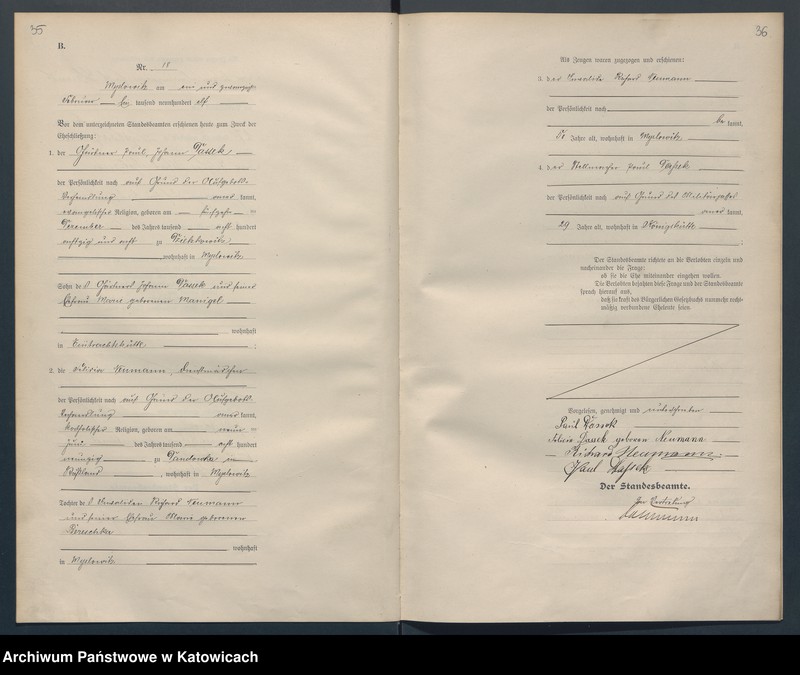 35
B.
Nr. 18
Myslowitz am ein und zwanzigsten
Februar tausend neunhundert elf
Vor dem unterzeichneten Standesbeamten erschienen heute zum Zweck der
Eheschließung:
1. der Paul, Johann
der Persönlichkeit nach auf Grund der Aufgebots-
verhandlung kannt,
evangelischer Religion, geboren am
Dezember des Jahres tausend acht hundert
achtzig und acht zu
, wohnhaft in Myslowitz
Sohn des Johann und seiner
Ehefrau Marie geborenen
wohnhaft
in Eintrachthütte ;
2. die Felicia Neumann,
der Persönlichkeit nach auf Grund der Aufgebots-
verhandlung kannt,
katholischer Religion, geboren am neun
Juni des Jahres tausend acht hundert
neunzig zu in
Russland , wohnhaft in Myslowitz
Tochter des Invaliden Richard Neumann
und seiner Ehefrau Marie geborenen
wohnhaft
in Myslowitz
36
Als Zeugen waren zugezogen und erschienen:
3. der Invalide Richard Neumann
der Persönlichkeit nach
be kannt,
Jahre alt, wohnhaft in Myslowitz
4. der Paul
der Persönlichkeit nach auf Grund des Militärpasses
kannt,
29 Jahre alt, wohnhaft in Königshütte
;
Der Standesbeamte richtete an die Verlobten einzeln und
nacheinander die Frage:
ob sie die Ehe miteinander eingehen wollen.
Die Verlobten bejahten diese Frage und der Standesbeamte
sprach hierauf aus,
daß sie kraft des Bürgerlichen Gesetzbuchs nunmehr recht-
mäßig verbundene Eheleute seien.
Vorgelesen, genehmigt und unterschrieben
Paul
Felicia geborene Neumann
Richard Neumann
Paul
Der Standesbeamte.
In Vertretung
Archiwum Państwowe w Katowicach